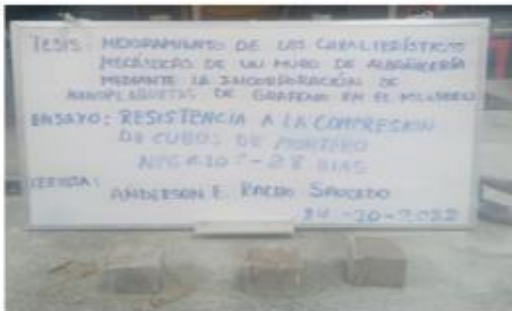 TESIS: MEJORAMIENTO DE LAS CARACTERÍSTICAS
MECÁNICAS DE UN MURO DE ALBAÑILERÍA
MEDIANTE LA INCORPORACIÓN DE
NANOPLAQUETAS DE GRAFENO EN EL MORTERO
ENSAYO: RESISTENCIA A LA COMPRESION
DE CUBOS DE MORTERO
28 DIAS
TESISTA:
ANDERSON E. SAUCEDO